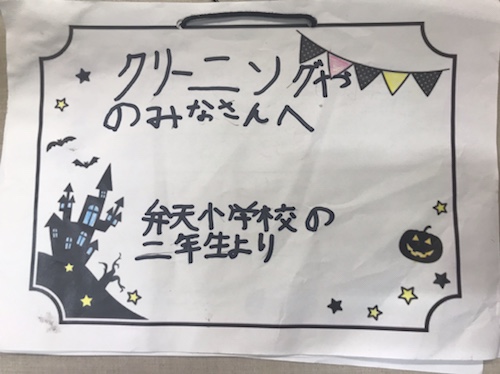 クリーニングやさ
のみなさんへ
弁天小学校の
二年生より